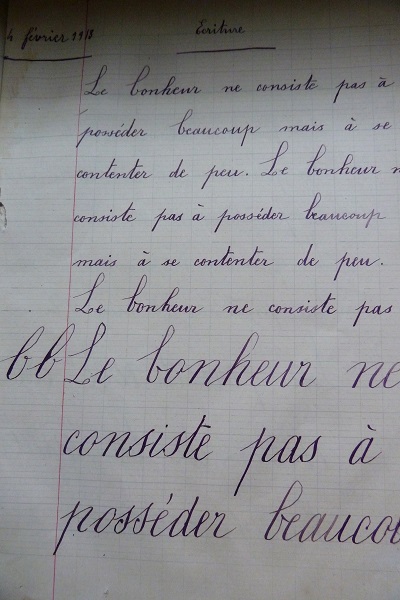 4 février 1913 Ecriture
Le bonheur ne consiste pas à
posséder beaucoup mais à se
contenter de peu. Le bonheur n
consiste pas à posséder beaucoup
mais à se contenter de peu.
Le bonheur ne consiste pas
bb Le bonheur ne
consiste pas à
posséder beaucou